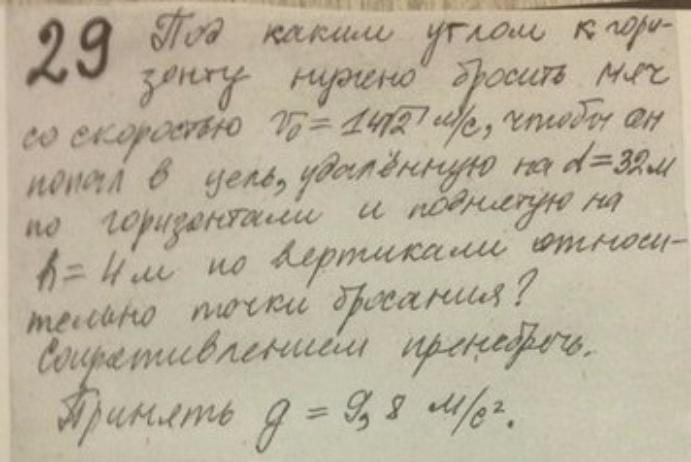 29 Под каким углом к гори-
зонту нужно бросить мяч
со скоростью V₀ = 14√2 м/с, чтобы он
попал в цель, удалённую на d = 32 м
по горизонтали и поднятую на
h = 4 м по вертикали относи-
тельно точки бросания?
Сопротивлением пренебречь.
Принять g = 9,8 м/с².